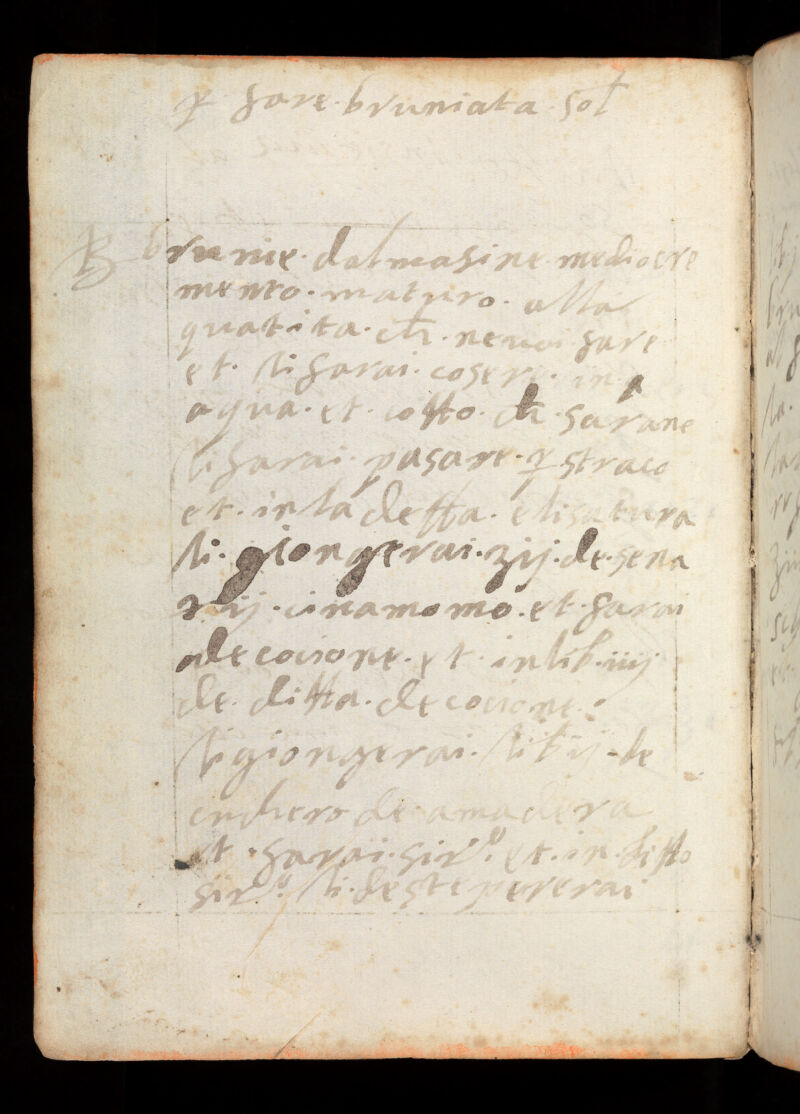 ꝑ fare · bruniata · sol̄
℞ brunie · dalmasine · mediocre
mento · maturo · alla
quatita · ch̄ · ne uoi fare
et · li farai · cosere · in
aqua · et · cotto · ch̄ · sarane
li farai · pasare · ꝑ straco
et · in la detta · elisatura
li · giongerai · ʒij · de · sena
ʒ ij · cinamomo · et · farai
decocione · et · in lib · iiij
de · ditta · decocione ·
li giongerai · lib ij · de
cuchero de · amadera
et · farai · sirº · et · in · ditto
sirº · li · destepererai